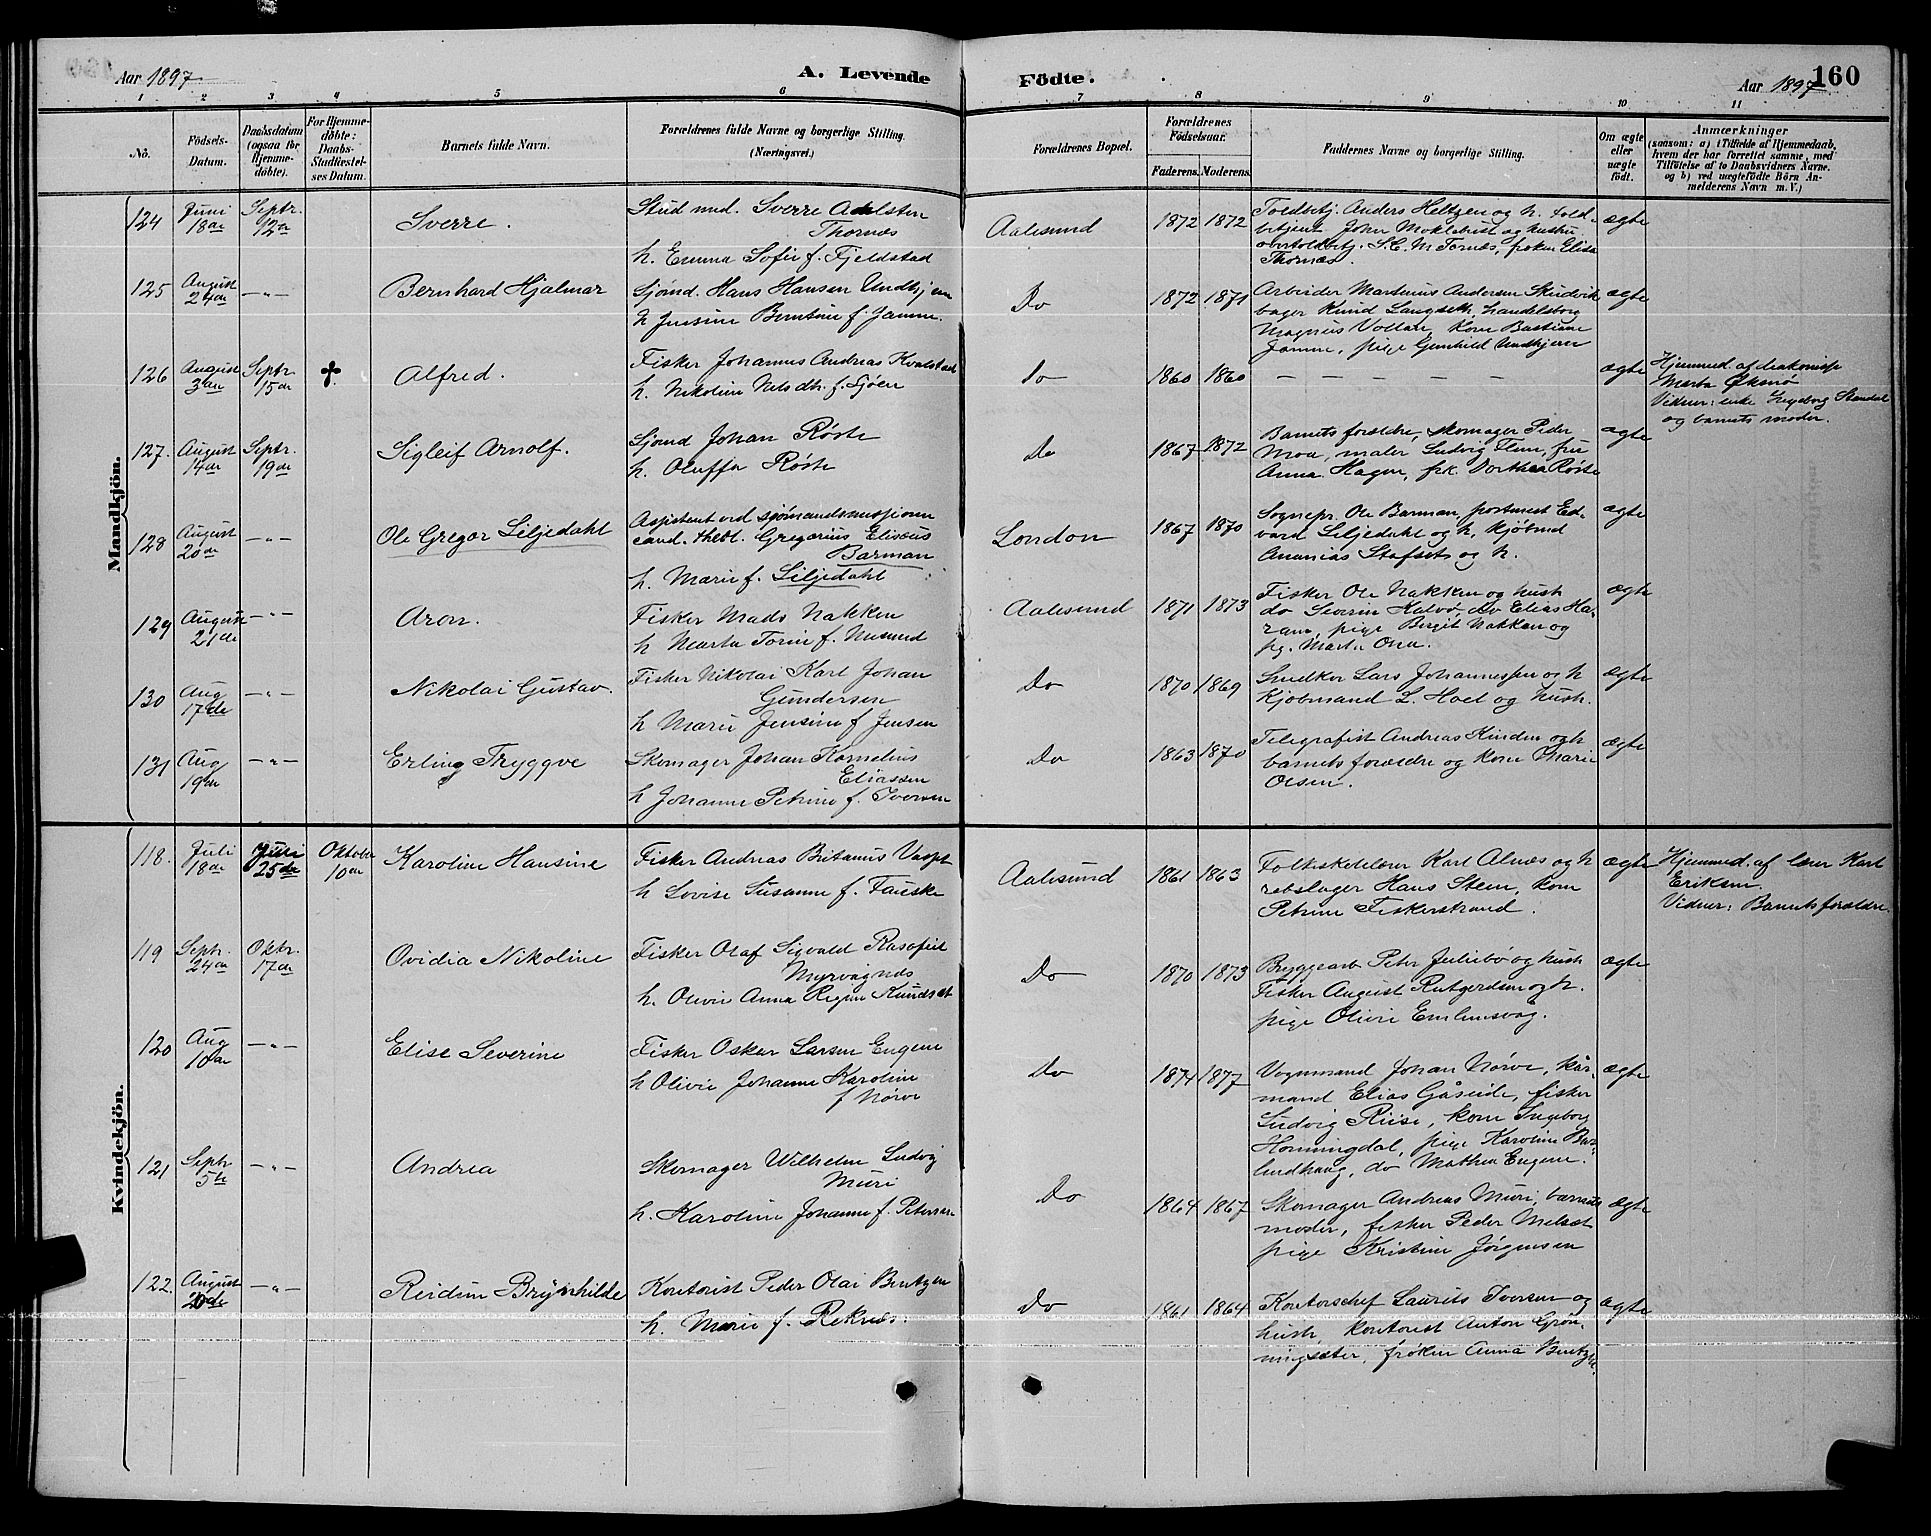 Aar 1897
A. Levende Födte.
Aar 1897
160
1 2 3 4 5 6 7 8 9 10 11
No.
Födsels-
Datum.
Daabsdatum
(ogsaa for
Hjemme-
döbte).
For Hjemme-
döbte:
Daabs-
Stadfæstel-
ses Datum.
Barnets fulde Navn.
Forældrenes fulde Navne og borgerlige Stilling.
(Næringsvei.)
Forældrenes Bopæl.
Forældrenes
Födselsaar.
Faderens. Moderens.
Faddernes Navne og borgerlige Stilling.
Om ægte
eller
uægte
födt.
Anmærkninger
(saasom: a) i Tilfælde af Hjemmedaab,
hvem der har forrettet samme, med
Tilföielse af to Daabsvidners Navne.
og b) ved uægtefödte Börn An-
melderens Navn m. V.)
Mandkjön.
124
Juni
18de
Septr.
12te
Sverre.
Stud med. Sverre
Thornæs
h. Emma Sofie f. Fjeldstad
Aalesund
1872 1872
Toldbetj. Anders Heltzen og h. told-
betjent John Moklebust og hustru
overtoldbetj. S.C.M. Tornæs, frøken Elise
Thornæs.
ægte
125
August
24de
-"-
Bernhard Hjalmar
Sjømd. Hans Hansen Undhjem
h Jensine Berntine f. Jamne.
Do
1872 1871
Arbeider Martinus Andersen Skudvik
bager Knud Langseth, handelsborg
Magnus Vollan, kone Bastiane
Jamne, pige Gunhild Undhjem
ægte
126
August
3die
Septr.
15de
†
Alfred.
Fisker Johannes Andreas Kvalstad
h. Nikoline Nelsdtr. f. Sjøen
Do
1860 1860
— — — — — —
ægte
Hjemmed. af diakonisse
Marta Øksnø
Vidner: enke Ingeborg Standal
og barnets moder.
127.
August
14de
Septr.
19de
Sigleif Arnolf.
Sjømd Johan Røste
h. Oluffa Røste
Do
1867 1872
Barnets forældre, skomager Peder
Moa, maler Ludvig Flem, fru
Anna Hagen, frk. Dorthea Røste
ægte
128
August
20de
-"-
Ole Gregor Liljedahl
Assistent ved sjømandsmissionen
cand. theol. Gregorius Elisæus
Barman
h. Marie f. Liljedahl
London
1867 1870
Sognepr. Ole Barman, postmest Ed-
vard Liljedahl og h, kjøbmd
Ananias Stafset og h.
ægte
129
August
21de
-"-
Aron.
Fisker Mads Nakken
h Marta Torine f.
Aalesund
1871 1873
Fisker Ole Nakken og hust
do Severin Kalvø, do Elias Ha-
ram, pige Bergit Nakken og
pg. Marte Ona.
ægte
130
Aug
17de
-"-
Nikolai Gustav.
Fisker Nikolai Karl Johan
Gundersen
h Marie Jensine f Jensen
Do
1870 1869
Snedker Lars Johannessen og h
Kjøbmand L. Hoel og hustr.
ægte
131
Aug
19de
-"-
Erling Tryggve
Skomager Johan Kornelius
Eliassen
h Johanne Petrine f. Iversen
Do
1863 1870
Telegrafist Andreas Kinden og h
barnets forældre og kone Marie
Olsen.
ægte
Kvindekjön.
118.
Juli
18de
Juli
25de
Oktober
10de
Karoline Hansine
Fisker Andreas Britanus
h Lovise Susanne f. Fauske
Aalesund
1861 1863
Folkeskolelærer Karl Alnæs og h
rebslager Hans Steen, kone
Petrine Fiskerstrand.
ægte
Hjemmed. af lærer Karl
Eriksen.
Vidner: Barnets forældre.
119
Septr.
24de
Oktr.
17de
Ovidia Nikoline
Fisker Olaf Sigvald
Myrvagnes
h. Olivie Anna Regine Knudset
Do
1870 1873
Bryggearb Peter Juliebø og hustr
Fisker August Rutgerdsen og h.
pige Olivie Emlemsvag.
ægte
120
Aug
10de
-"-
Elise Severine
Fisker Oskar Larsen Engene
h Olivie Johanne Karoline
f Nørve
Do
1874 1877
Vognmand Johan Nørve, kår-
mand Elias Gåseide, fisker
Ludvig Riise, kone Ingeborg
Honningdal, pige Karoline Bor-
lundhaug, do Mathea Engene.
ægte
121
Septr
5te
-"-
Andrea
Skomager Wilhelm Ludvig
Muri
h. Karoline Johanne f. Petersen
Do
1864 1867
Skomager Andreas Muri, barnets
moder, fisker Peder Melset
pige Kristine Jørgensen
ægte
122.
August
20de
-"-
Reidun Brynhilde
Kontorist Peder Olai Bentzen
h. Marie f. Reknes.
Do
1861 1864
Kontorchef Laurits Iversen og
hustr, kontorist Anton Grøn-
ningsæter, frøken Anna Bentzen.
ægte